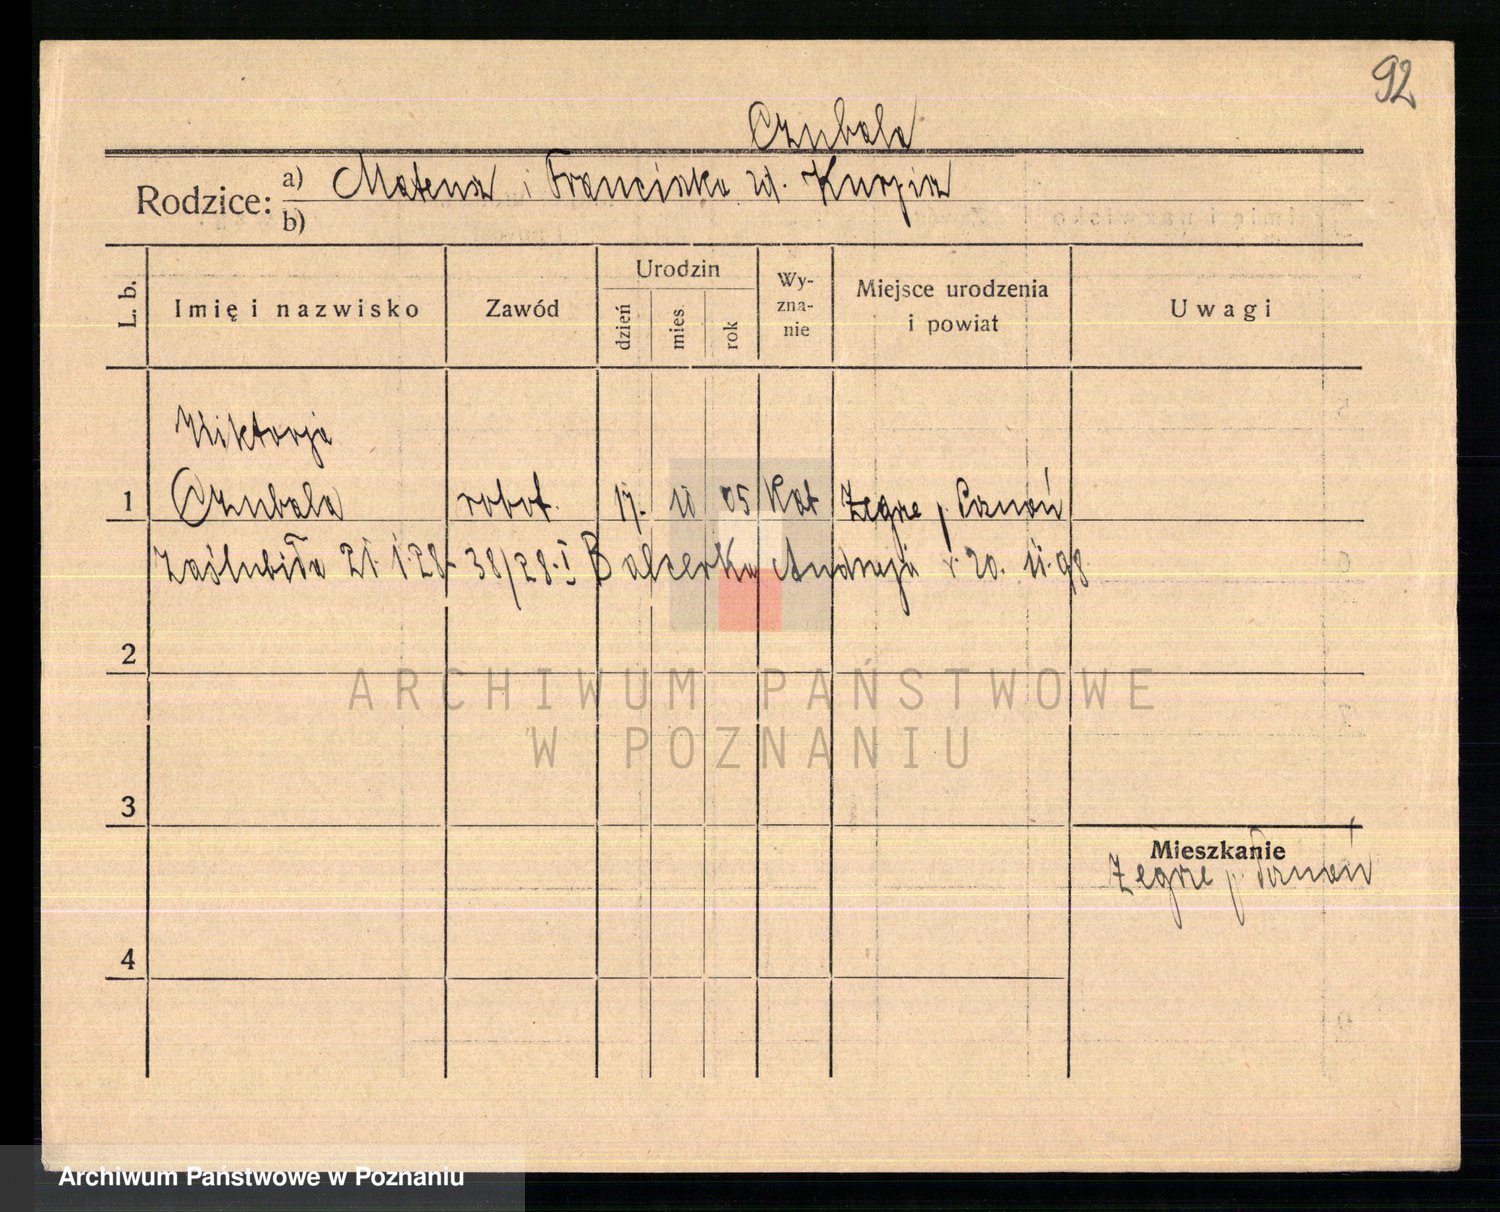 92
Czubala
Rodzice: a) Mateusz i Franciszka ur. Kurpisz
b)
L. b. Imię i nazwisko Zawód Urodzin dzień mies. rok Wyznanie Miejsce urodzenia i powiat Uwagi
Wiktorja
1 Czubala robot. 17. 11 05 Kat Żegrze, Poznań
Zaślubiła 21.1.28. 38/28.I Balcerka Andrzeja r. 20. 11.98
2
ARCHIWUM PAŃSTWOWE
W POZNANIU
3
Mieszkanie
Żegrze p. Poznań
4
Archiwum Państwowe w Poznaniu